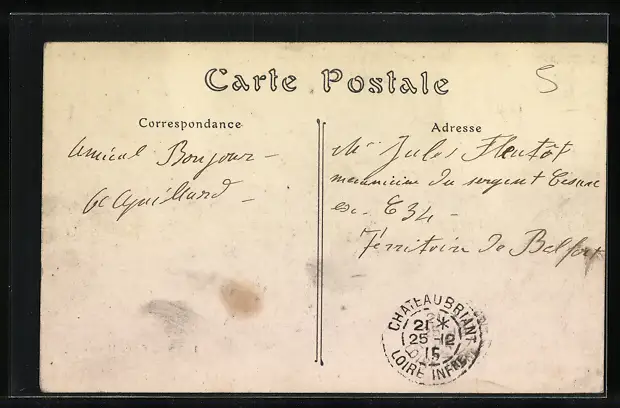 Carte Postale
5
Correspondance
Amical Bonjour -
Adresse
Mr Jules Fleutôt
mecanicien du sergent
esc. C 34 -
Territoire de Belfort
CHATEAUBRIANT
21 *
25-12
15
LOIRE INFRE